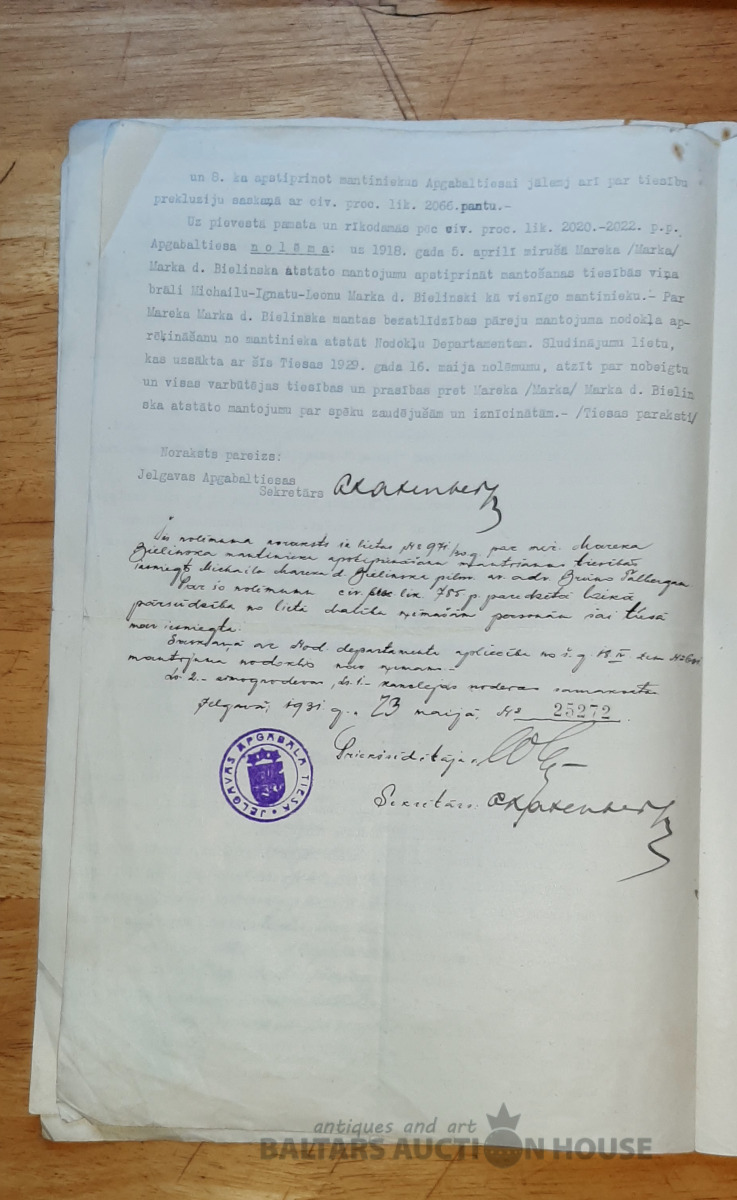 un 8. ka apstiprinot mantiniekus Apgabaltiesai jālemj arī par tiesību
prekluziju saskaņā ar civ. proc. lik. 2066.pantu.-
Uz pievestā pamata un rīkodamās pēc civ. proc. lik. 2020.-2022. p.p.
Apgabaltiesa n o l ē m a: uz 1918. gada 5. aprilī mirušā Mareka /Marka/
Marka d. Bielinska atstāto mantojumu apstiprināt mantošanas tiesībās viņa
brāli Michailu-Ignatu-Leonu Marka d. Bielinski kā vienīgo mantinieku.- Par
Mareka Marka d. Bielinska mantas bezatlīdzības pāreju mantojuma nodokļa ap-
rēķināšanu no mantinieka atstāt Nodokļu Departamentam. Sludinājumu lietu,
kas uzsākta ar šīs Tiesas 1929. gada 16. maija nolēmumu, atzīt par nobeigtu
un visas varbūtējas tiesības un prasības pret Mareka /Marka/ Marka d. Bielin
ska atstāto mantojumu par spēku zaudējušām un iznīcinātām.- /Tiesas paraksti/
Noraksts pareizs:
Jelgavas Apgabaltiesas
Sekretārs
noraksts lietas № 971/30 g. par mir. Mareka
Bielinska mantinieka apstiprināšanu mantošanas tiesībās
izsniegts Michaila Mareka d. Bielinska pilnv. zv. adv. Bruno Talbergam
Par šo nolēmumu civ. proc. lik. 755 p. paredzētā laikā
pārsūdzība no lietā dalību ņēmušām personām šai tiesā
nav iesniegta.
Saskaņā ar Nod. departamenta apliecību no š. g. IV
mantojuma nodoklis nav ņemams.-
Ls 2.- zīmognodevas, Ls 1.- kancelejas nodevas samaksātas
Jelgavā, 1931 g. 23 maijā, № 25272.
Priekšsēdētājs
Sekretārs
JELGAVAS APGABALA TIESA
antiques and art
BALTARS AUCTION HOUSE